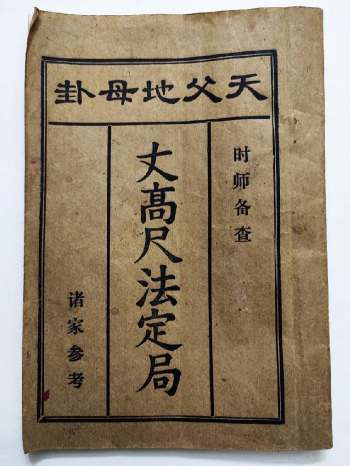 天父地母卦
时师备查
丈高尺法定局
诸家参考